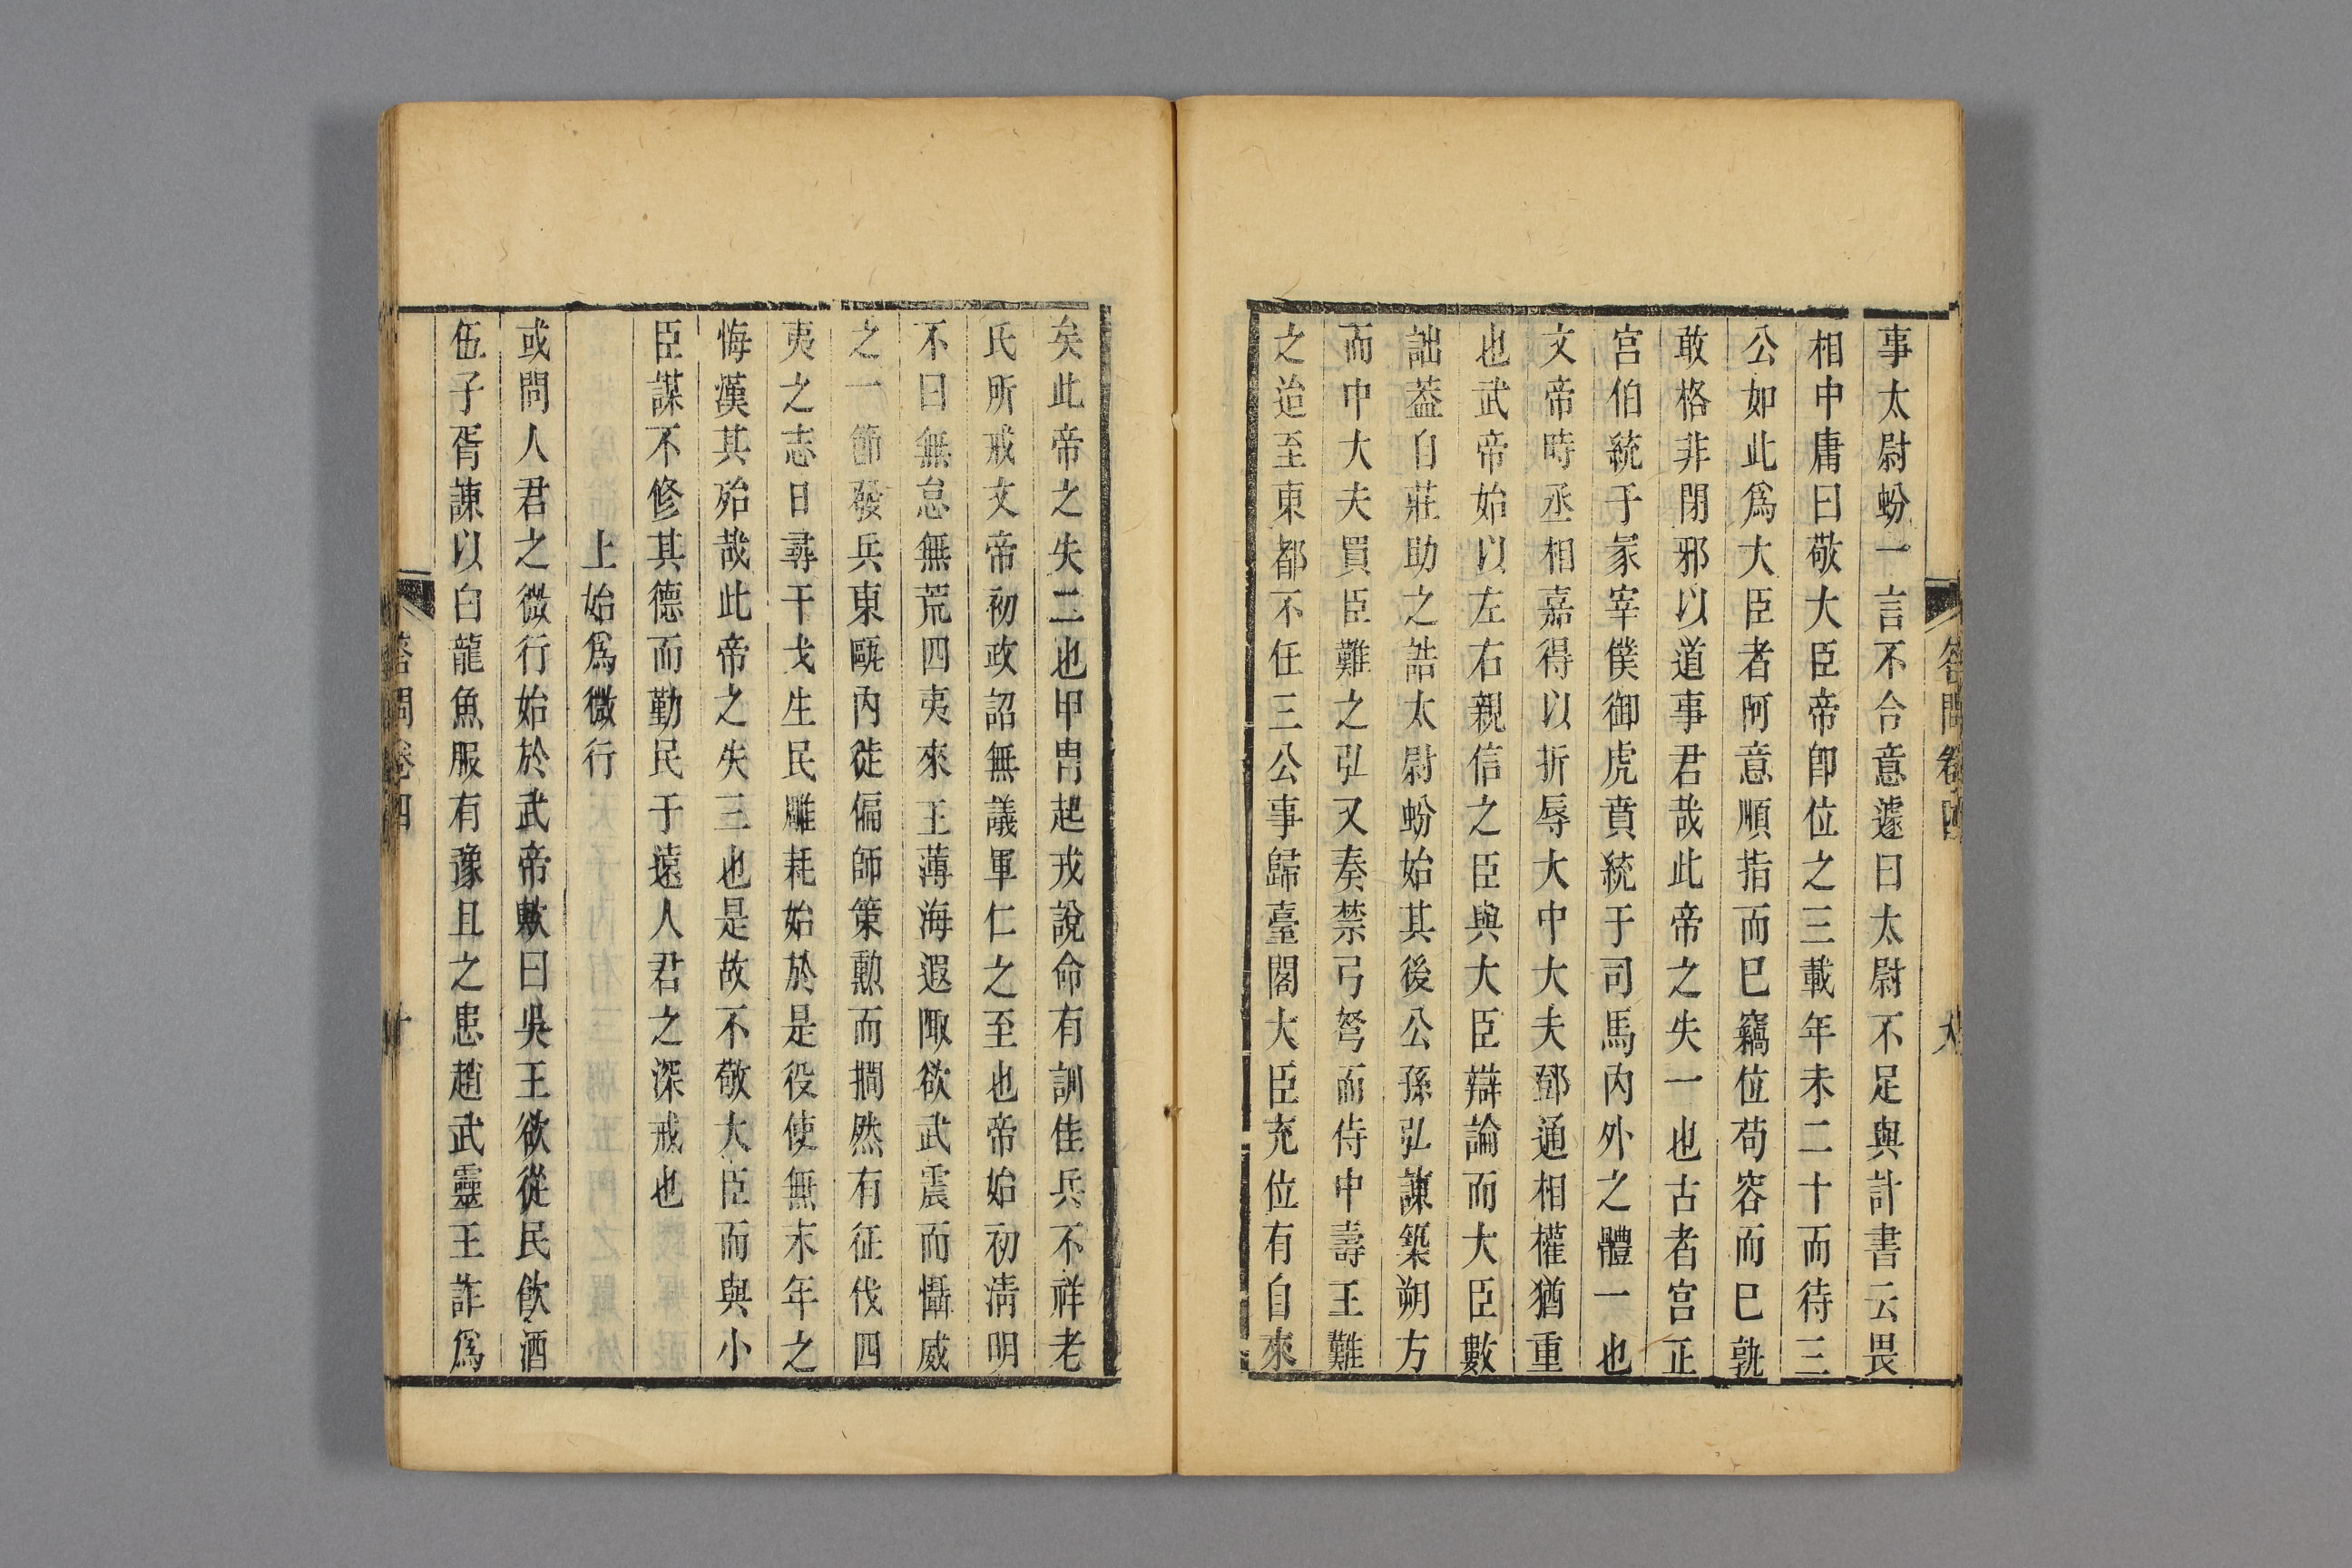 答問卷四 九
事太尉蚡一言不合意遽曰太尉不足與計書云畏
相中庸曰敬大臣帝卽位之三載年未二十而待三
公如此爲大臣者阿意順指而巳竊位苟容而巳孰
敢格非閉邪以道事君哉此帝之失一也古者宫正
宫伯統于冡宰僕御虎賁統于司馬內外之體一也
文帝時丞相嘉得以折辱大中大夫鄧通相權猶重
也武帝始以左右親信之臣與大臣辯論而大臣數
詘葢自莊助之詰太尉蚡始其後公孫弘諫築朔方
而中大夫買臣難之弘又奏禁弓弩而侍中壽王難
之迨至東都不任三公事歸臺閣大臣充位有自來
矣此帝之失二也甲冑起戎說命有訓佳兵不祥老
氏所戒文帝初政詔無議軍仁之至也帝始初淸明
不曰無怠無荒四夷來王薄海遐陬欲武震而懾威
之一節發兵東甌內徙偏師策勲而撊然有征伐四
夷之志日尋干戈生民雕耗始於是役使無末年之
悔漢其殆哉此帝之失三也是故不敬大臣而與小
臣謀不修其德而勤民于遠人君之深戒也
上始爲微行
或問人君之微行始於武帝歟曰吳王欲從民飮酒
伍子胥諫以白龍魚服有豫且之患趙武靈王詐爲
答問卷四 十